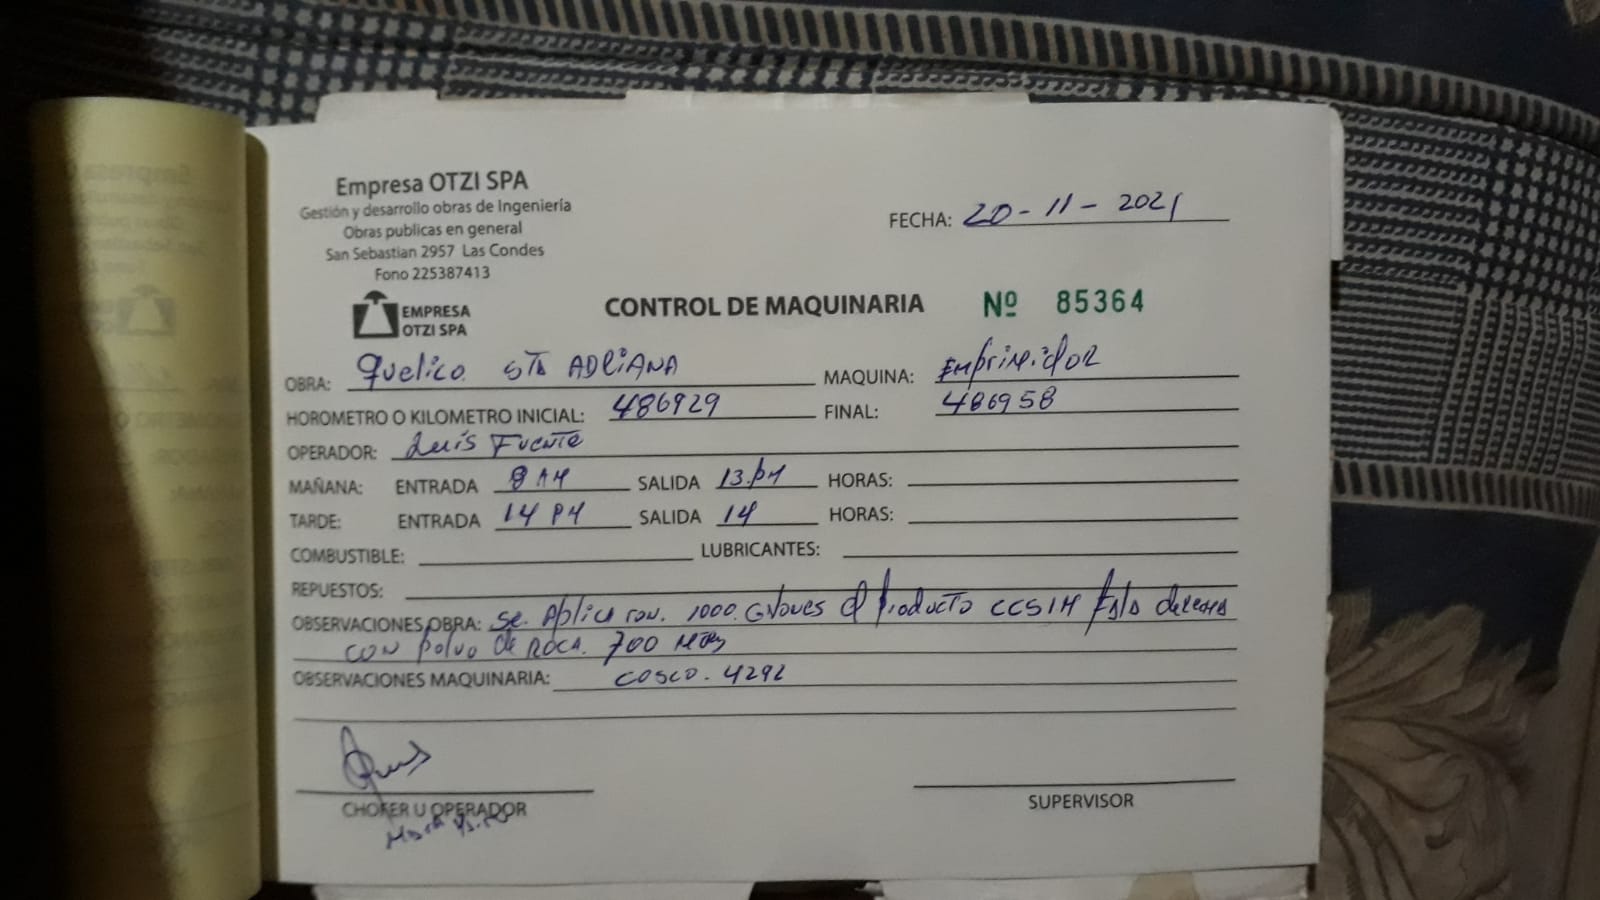 Empresa OTZI SPA
Gestión y desarrollo obras de Ingeniería
Obras publicas en general
San Sebastian 2957 Las Condes
Fono 225387413
FECHA: 20-11-2021
EMPRESA
OTZI SPA
CONTROL DE MAQUINARIA Nº 85364
OBRA: quelico. STA ADRIANA MAQUINA: Emprimidor
HOROMETRO O KILOMETRO INICIAL: 486929 FINAL: 486958
OPERADOR: Luis Fuente
MAÑANA: ENTRADA 8 AM SALIDA 13.PM HORAS:
TARDE: ENTRADA 14 PM SALIDA 14 HORAS:
COMBUSTIBLE: LUBRICANTES:
REPUESTOS:
OBSERVACIONES OBRA: Se. Aplica con. 1000. Galones Producto
CON polvo de ROCA. 700 Mtrs
OBSERVACIONES MAQUINARIA: COSCO. 4292
CHOFER U OPERADOR
SUPERVISOR